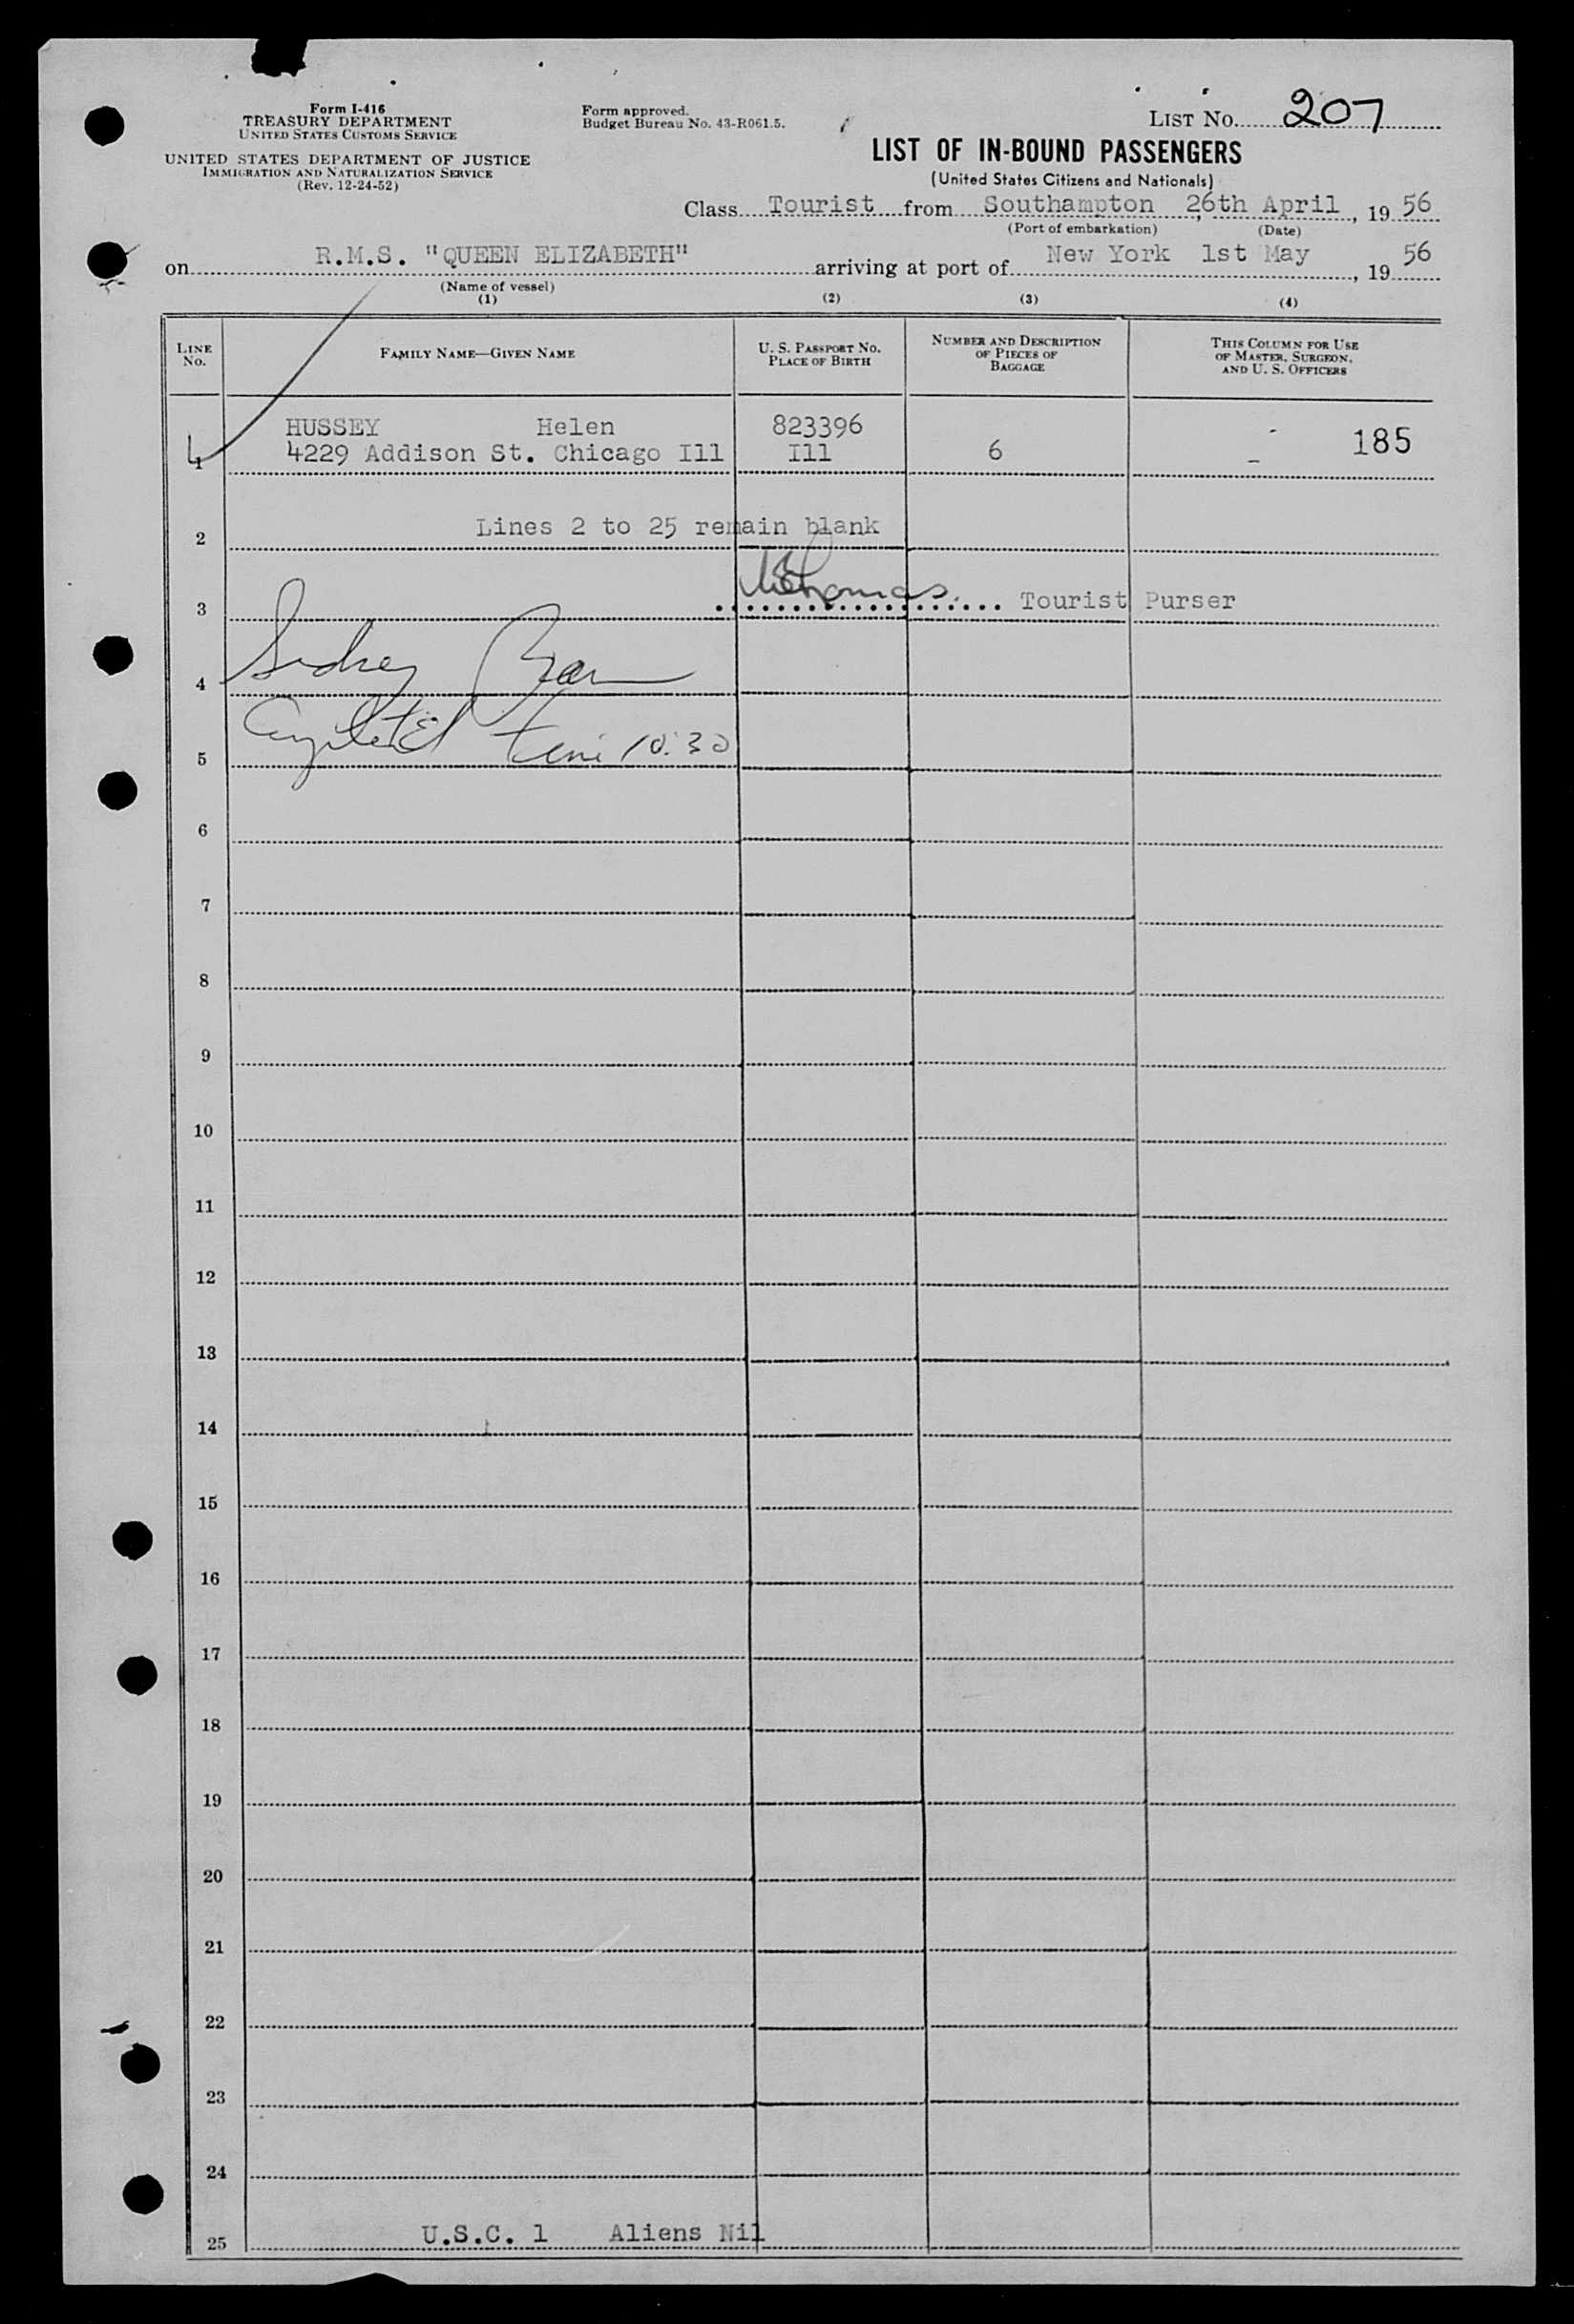 Form I-416
TREASURY DEPARTMENT
UNITED STATES CUSTOMS SERVICE
UNITED STATES DEPARTMENT OF JUSTICE
IMMIGRATION AND NATURALIZATION SERVICE
(Rev. 12-24-52)
Form approved.
Budget Bureau No. 43-R061.5.
LIST No. 207
LIST OF IN-BOUND PASSENGERS
(United States Citizens and Nationals)
Class Tourist from Southampton, 26th April, 19 56
(Port of embarkation) (Date)
on R.M.S. "QUEEN ELIZABETH" arriving at port of New York 1st May, 19 56
(Name of vessel)
(1) (2) (3) (4)
LINE No. FAMILY NAME—GIVEN NAME U. S. PASSPORT No. PLACE OF BIRTH NUMBER AND DESCRIPTION OF PIECES OF BAGGAGE THIS COLUMN FOR USE OF MASTER, SURGEON, AND U. S. OFFICERS
HUSSEY Helen 823396
1 4229 Addison St. Chicago Ill Ill 6 - 185
Lines 2 to 25 remain blank
2
3 Thomas Tourist Purser
4 Sidney
5 10:30
6
7
8
9
10
11
12
13
14
15
16
17
18
19
20
21
22
23
24
25 U.S.C. 1 Aliens Nil